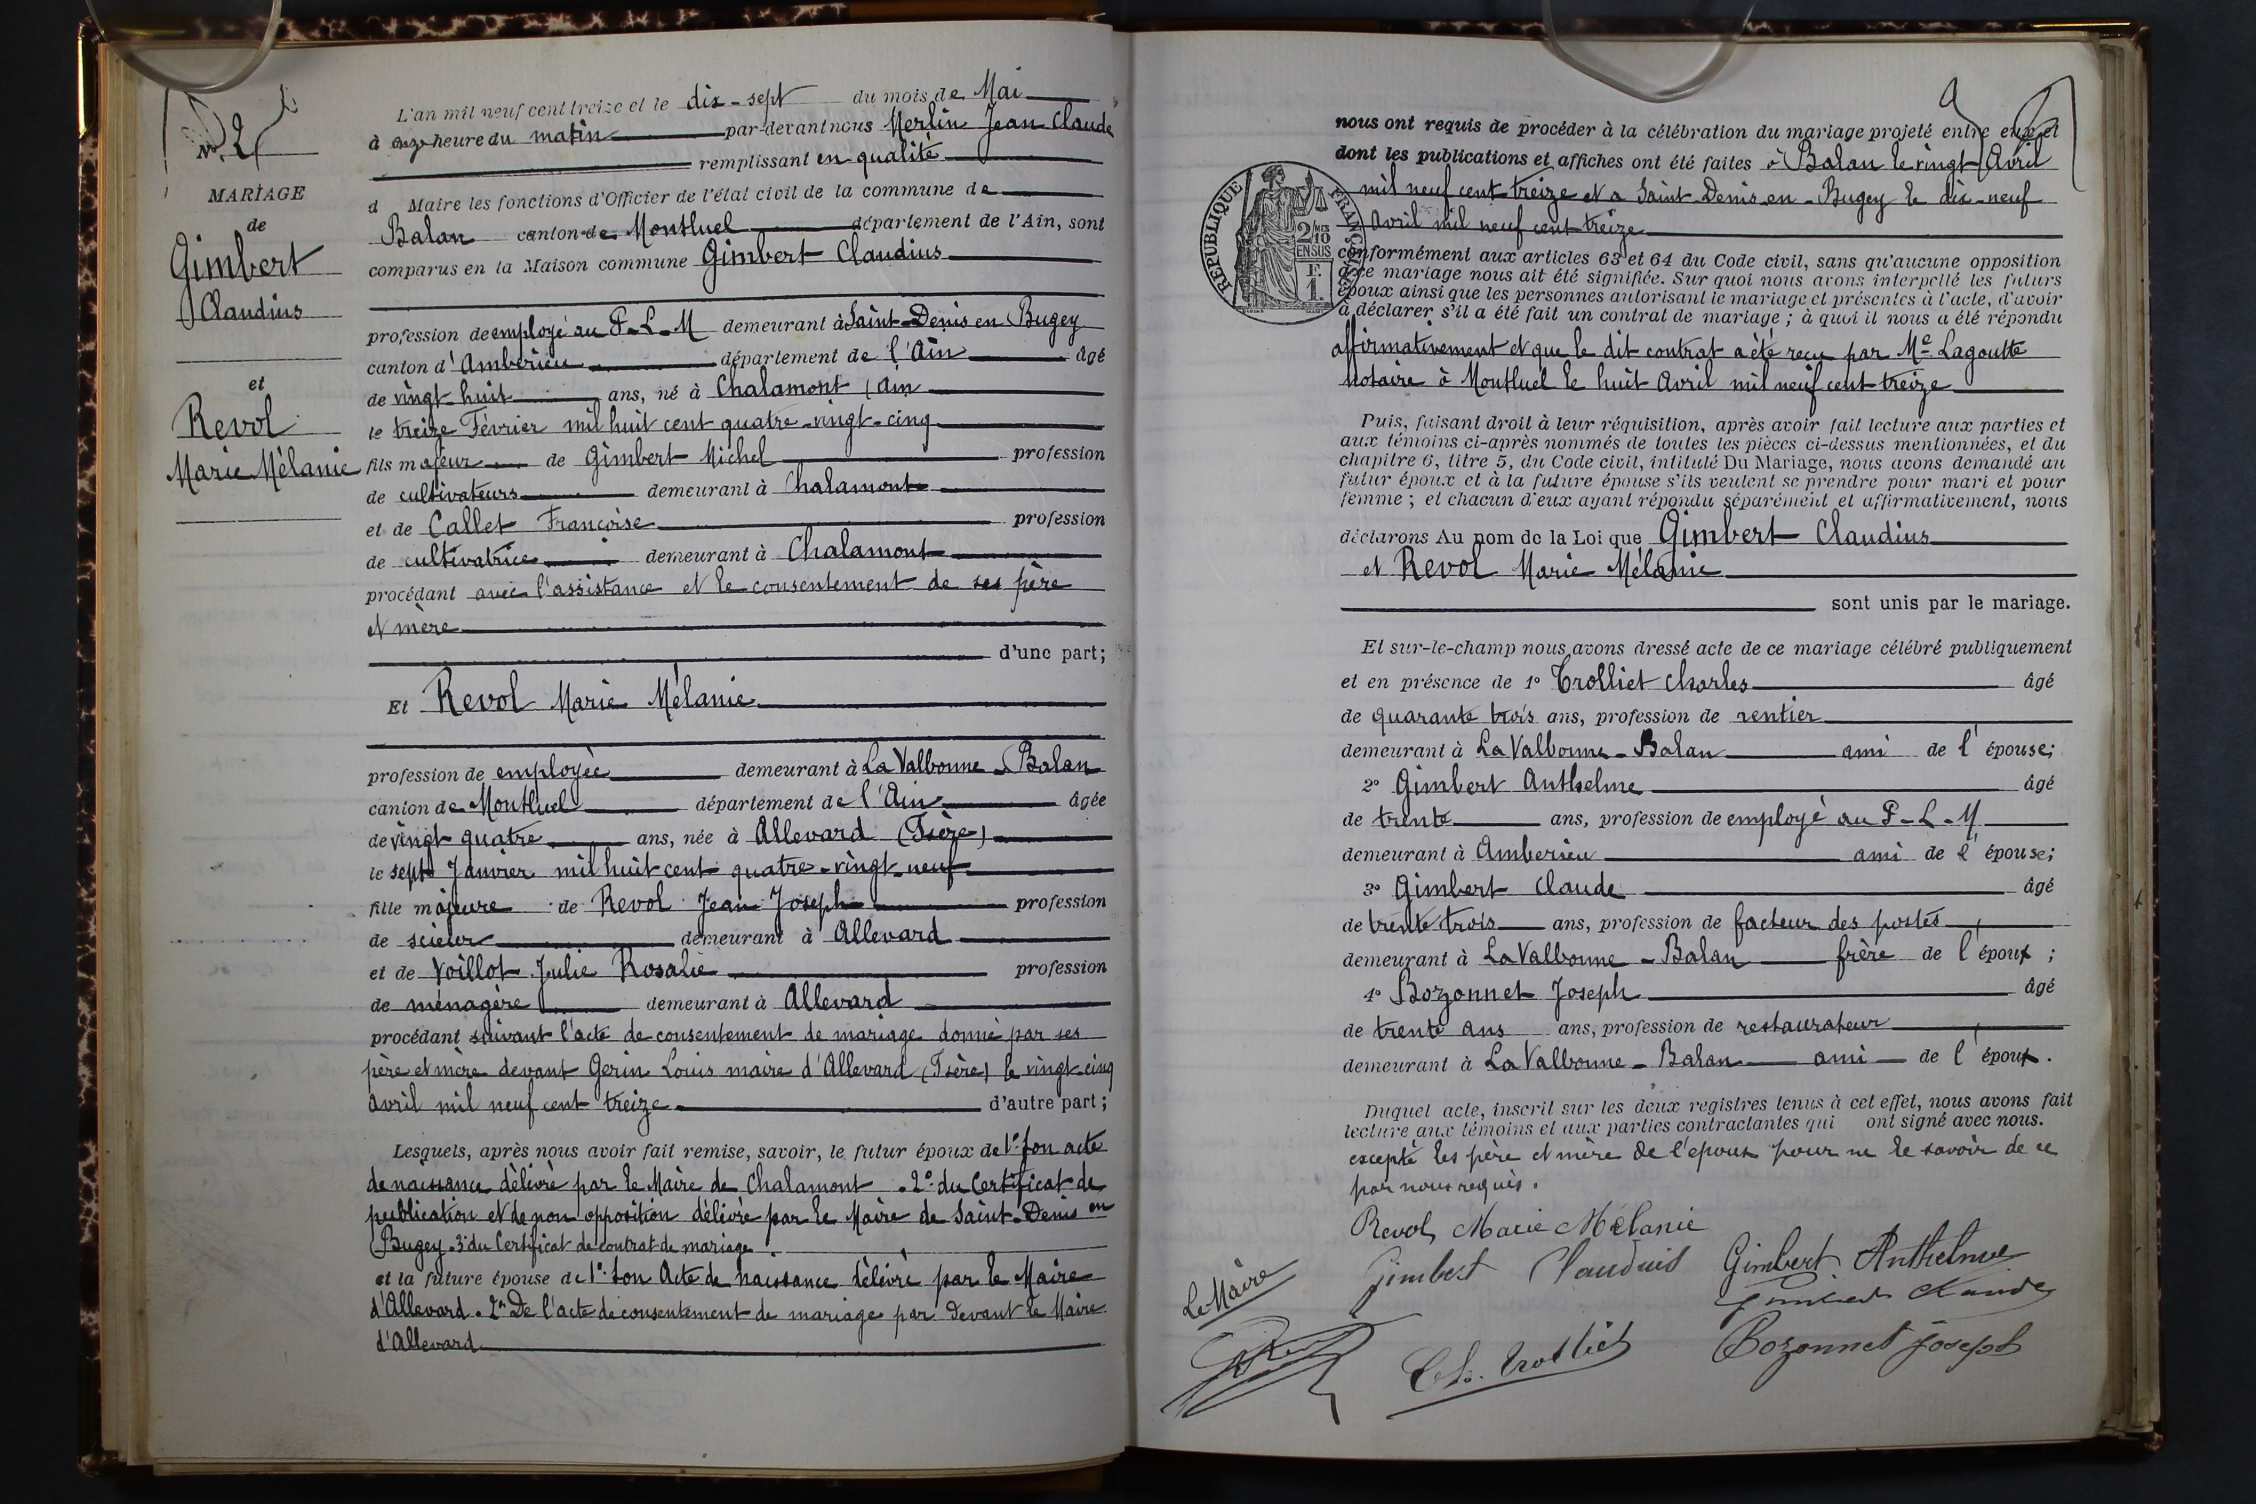 n° 2
MARIAGE
de
Gimbert
Claudius
et
Revol
Marie Mélanie
L'an mil neuf cent treize et le dix-sept du mois de Mai
à onze heure du matin par-devant nous Merlin Jean Claude
remplissant en qualité
d Maire les fonctions d'Officier de l'état civil de la commune de
Balan canton de Montluel département de l'Ain, sont
comparus en la Maison commune Gimbert Claudius
profession de employé au P-L-M demeurant à Saint-Denis en Bugey
canton d'Amberieu département de l'Ain âgé
de vingt huit ans, né à Chalamont (Ain
le treize Février mil huit cent quatre-vingt-cinq
fils majeur de Gimbert Michel profession
de cultivateurs demeurant à Chalamont
et de Callet Françoise profession
de cultivatrice demeurant à Chalamont
procédant avec l'assistance et le consentement de ses père
et mère
d'une part;
Et Revol Marie Mélanie
profession de employée demeurant à La Valbonne - Balan
canton de Montluel département de l'Ain âgée
de vingt quatre ans, née à Allevard (Isère)
le sept Janvier mil huit cent quatre-vingt-neuf
fille majeure de Revol Jean Joseph profession
de scieur demeurant à Allevard
et de Voillot Julie Rosalie profession
de ménagère demeurant à Allevard
procédant suivant l'acte de consentement de mariage donné par ses
père et mère devant Gerin Louis maire d'Allevard (Isère) le vingt-cinq
avril mil neuf cent treize d'autre part;
Lesquels, après nous avoir fait remise, savoir, le futur époux de 1° son acte
de naissance délivré par le Maire de Chalamont . 2° du Certificat de
publication et de non opposition délivré par le Maire de Saint-Denis en
Bugey . 3° du Certificat de contrat de mariage .
et la future épouse de 1° son Acte de naissance délivré par le Maire
d'Allevard . 2° De l'acte de consentement de mariage par devant le Maire
d'Allevard
nous ont requis de procéder à la célébration du mariage projeté entre eux et
dont les publications et affiches ont été faites à Balan le vingt Avril
mil neuf cent treize et a Saint-Denis-en-Bugey le dix-neuf
Avril mil neuf cent treize
REPUBLIQUE FRANÇAISE
2/10
EN SUS
F.
1.
conformément aux articles 63 et 64 du Code civil, sans qu'aucune opposition
à ce mariage nous ait été signifiée. Sur quoi nous avons interpellé les futurs
époux ainsi que les personnes autorisant le mariage et présentes à l'acte, d'avoir
à déclarer s'il a été fait un contrat de mariage ; à quoi il nous a été répondu
affirmativement et que le dit contrat a été reçu par Me Lagoutte
Notaire à Montluel le huit Avril mil neuf cent treize
Puis, faisant droit à leur réquisition, après avoir fait lecture aux parties et
aux témoins ci-après nommés de toutes les pièces ci-dessus mentionnées, et du
chapitre 6, titre 5, du Code civil, intitulé Du Mariage, nous avons demandé au
futur époux et à la future épouse s'ils veulent se prendre pour mari et pour
femme ; et chacun d'eux ayant répondu séparément et affirmativement, nous
déclarons Au nom de la Loi que Gimbert Claudius
et Revol Marie Mélanie
sont unis par le mariage.
Et sur-le-champ nous avons dressé acte de ce mariage célébré publiquement
et en présence de 1° Trolliet Charles âgé
de quarante trois ans, profession de rentier
demeurant à La Valbonne - Balan ami de l'épouse;
2° Gimbert Anthelme âgé
de trente ans, profession de employé au P-L-M
demeurant à Amberieu ami de l'épouse;
3° Gimbert Claude âgé
de trente trois ans, profession de facteur des postes
demeurant à La Valbonne - Balan frère de l'époux ;
4° Bozonnet Joseph âgé
de trente ans ans, profession de restaurateur
demeurant à La Valbonne - Balan ami de l'époux.
Duquel acte, inscrit sur les deux registres tenus à cet effet, nous avons fait
lecture aux témoins et aux parties contractantes qui ont signé avec nous.
excepté les père et mère de l'époux pour ne le savoir de ce
par nous requis.
Revol Marie Mélanie
Gimbert Claudius Gimbert Anthelme
Gimbert Claude
Le Maire
Ch. Trolliet Bozonnet Joseph